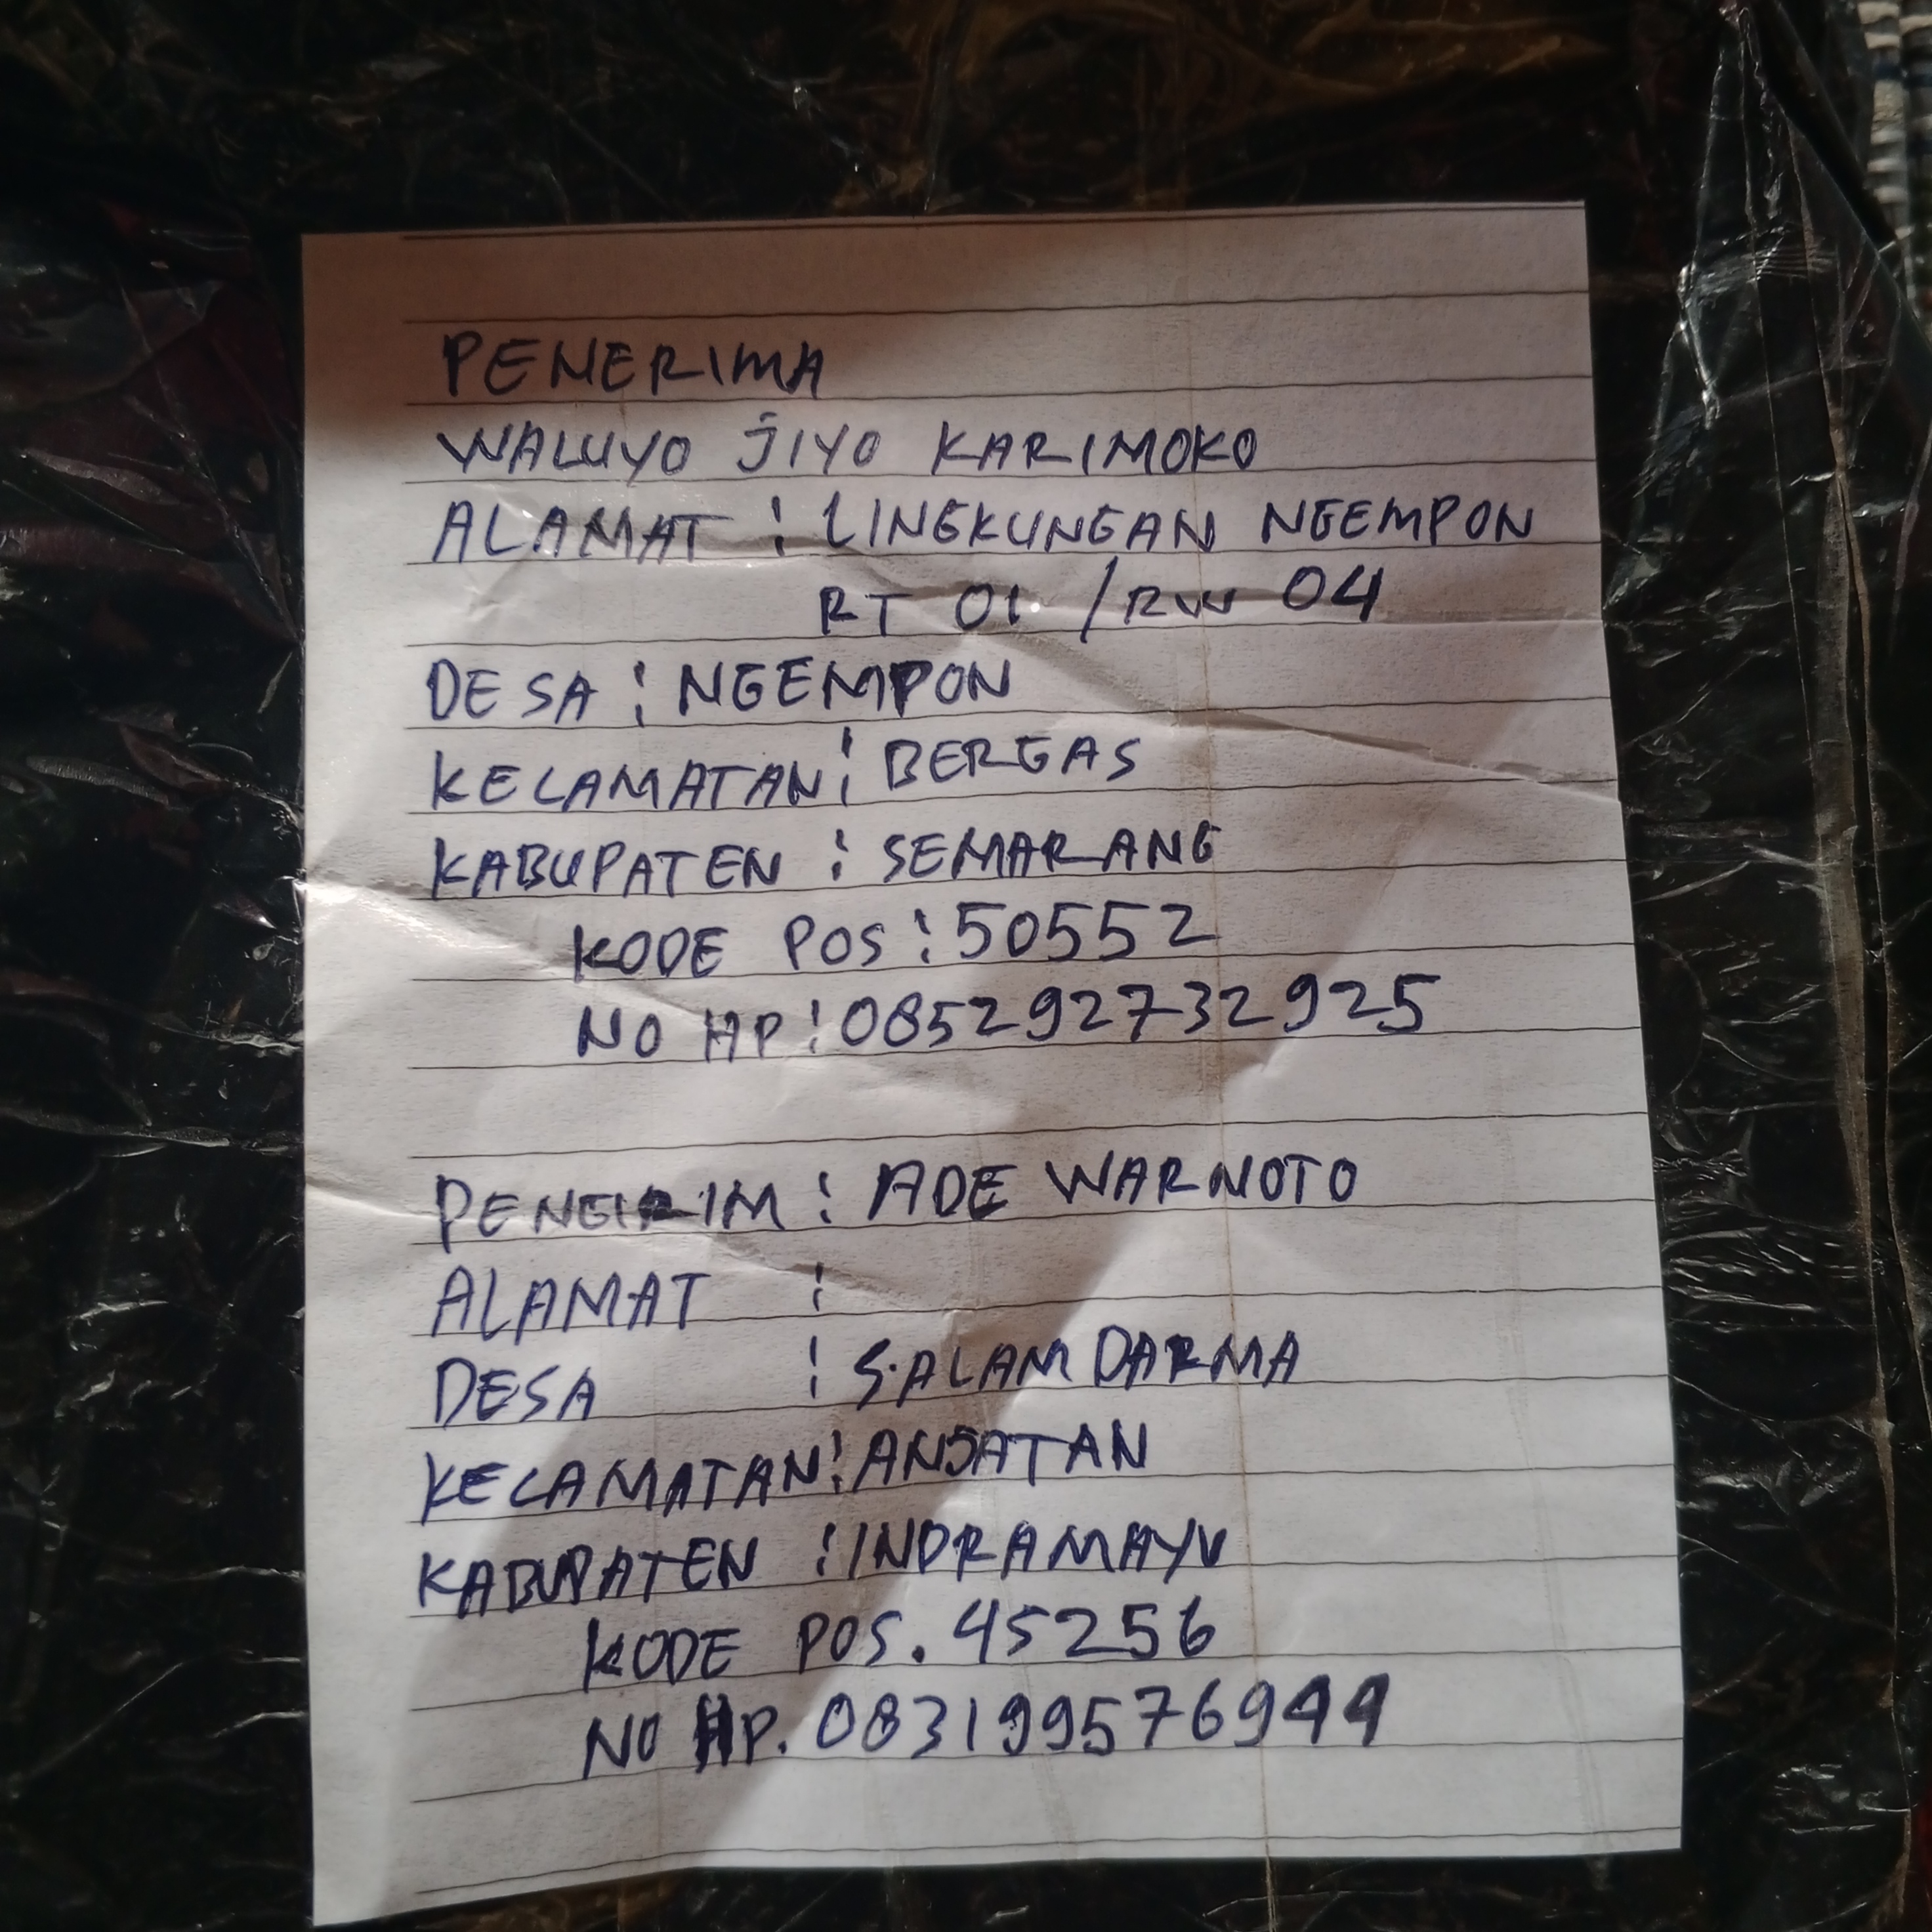 PENERIMA
WALUYO JIYO KARIMOKO
ALAMAT : LINGKUNGAN NGEMPON
RT 01 / RW 04
DESA : NGEMPON
KECAMATAN : BERGAS
KABUPATEN : SEMARANG
KODE POS : 50552
NO HP : 085292732925
PENGIRIM : ADE WARNOTO
ALAMAT :
DESA : SALAM DARMA
KECAMATAN : ANJATAN
KABUPATEN : INDRAMAYU
KODE POS. 45256
NO HP. 083199576944